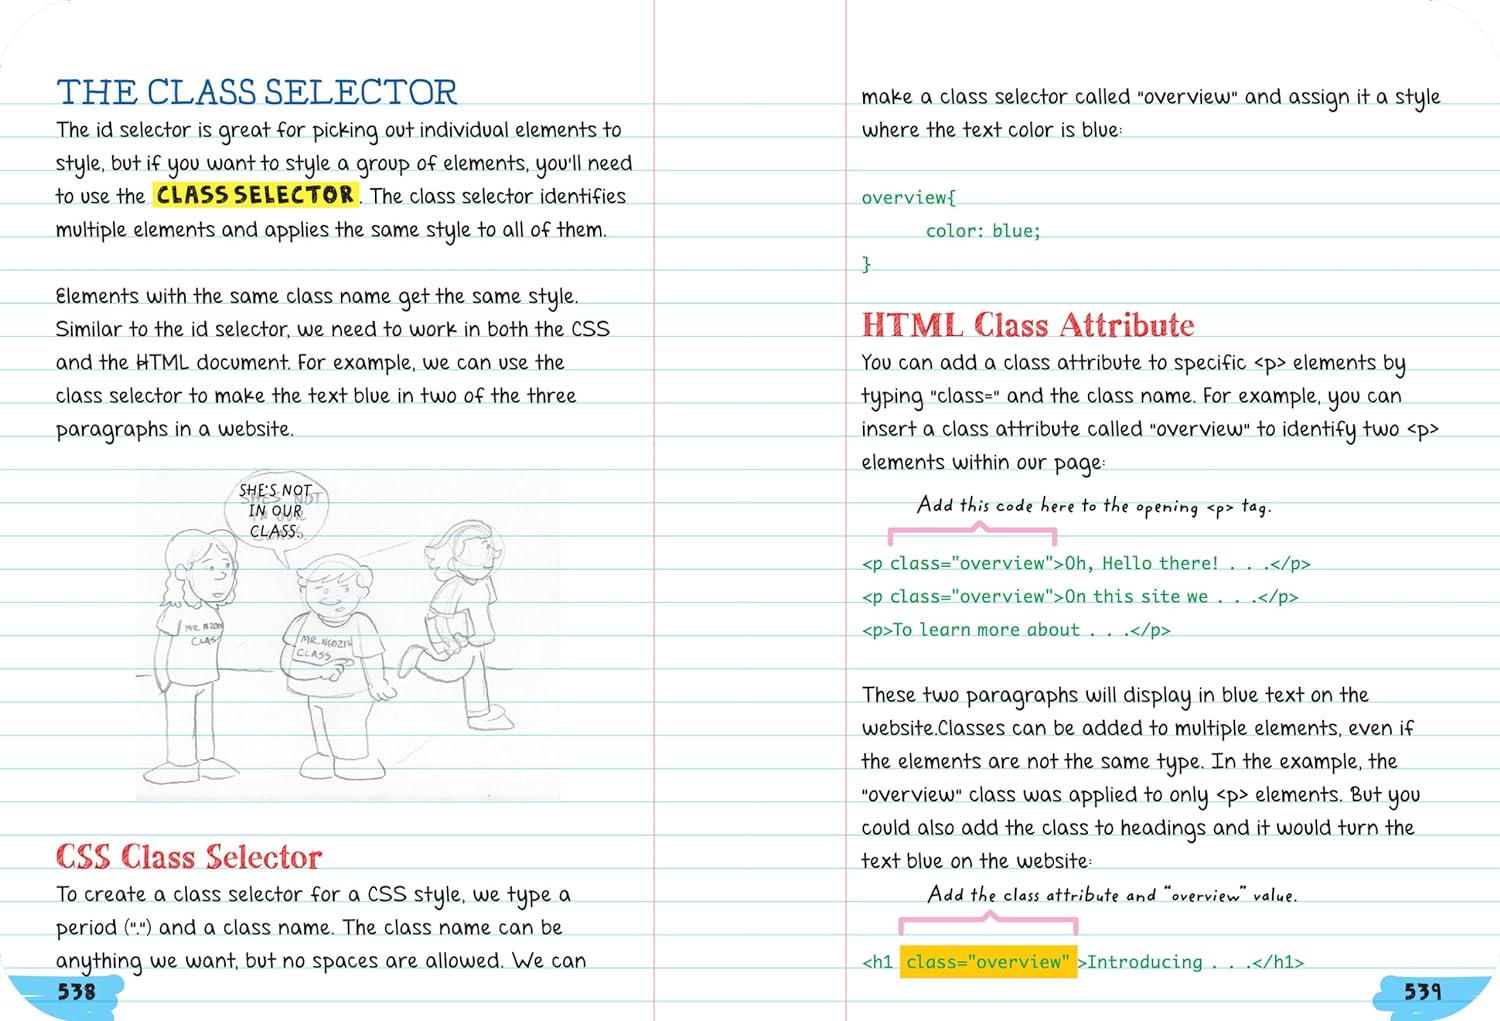 THE CLASS SELECTOR
The id selector is great for picking out individual elements to
style, but if you want to style a group of elements, you'll need
to use the CLASS SELECTOR. The class selector identifies
multiple elements and applies the same style to all of them.
Elements with the same class name get the same style.
Similar to the id selector, we need to work in both the CSS
and the HTML document. For example, we can use the
class selector to make the text blue in two of the three
paragraphs in a website.
SHE'S NOT
IN OUR
CLASS.
MR. NGOZI'S
CLASS
CSS Class Selector
To create a class selector for a CSS style, we type a
period (".") and a class name. The class name can be
anything we want, but no spaces are allowed. We can
538
make a class selector called "overview" and assign it a style
where the text color is blue:
overview{
color: blue;
}
HTML Class Attribute
You can add a class attribute to specific <p> elements by
typing "class=" and the class name. For example, you can
insert a class attribute called "overview" to identify two <p>
elements within our page:
Add this code here to the opening <p> tag.
<p class="overview">Oh, Hello there! . . .</p>
<p class="overview">On this site we . . .</p>
<p>To learn more about . . .</p>
These two paragraphs will display in blue text on the
website.Classes can be added to multiple elements, even if
the elements are not the same type. In the example, the
"overview" class was applied to only <p> elements. But you
could also add the class to headings and it would turn the
text blue on the website:
Add the class attribute and "overview" value.
<h1 class="overview" >Introducing . . .</h1>
539